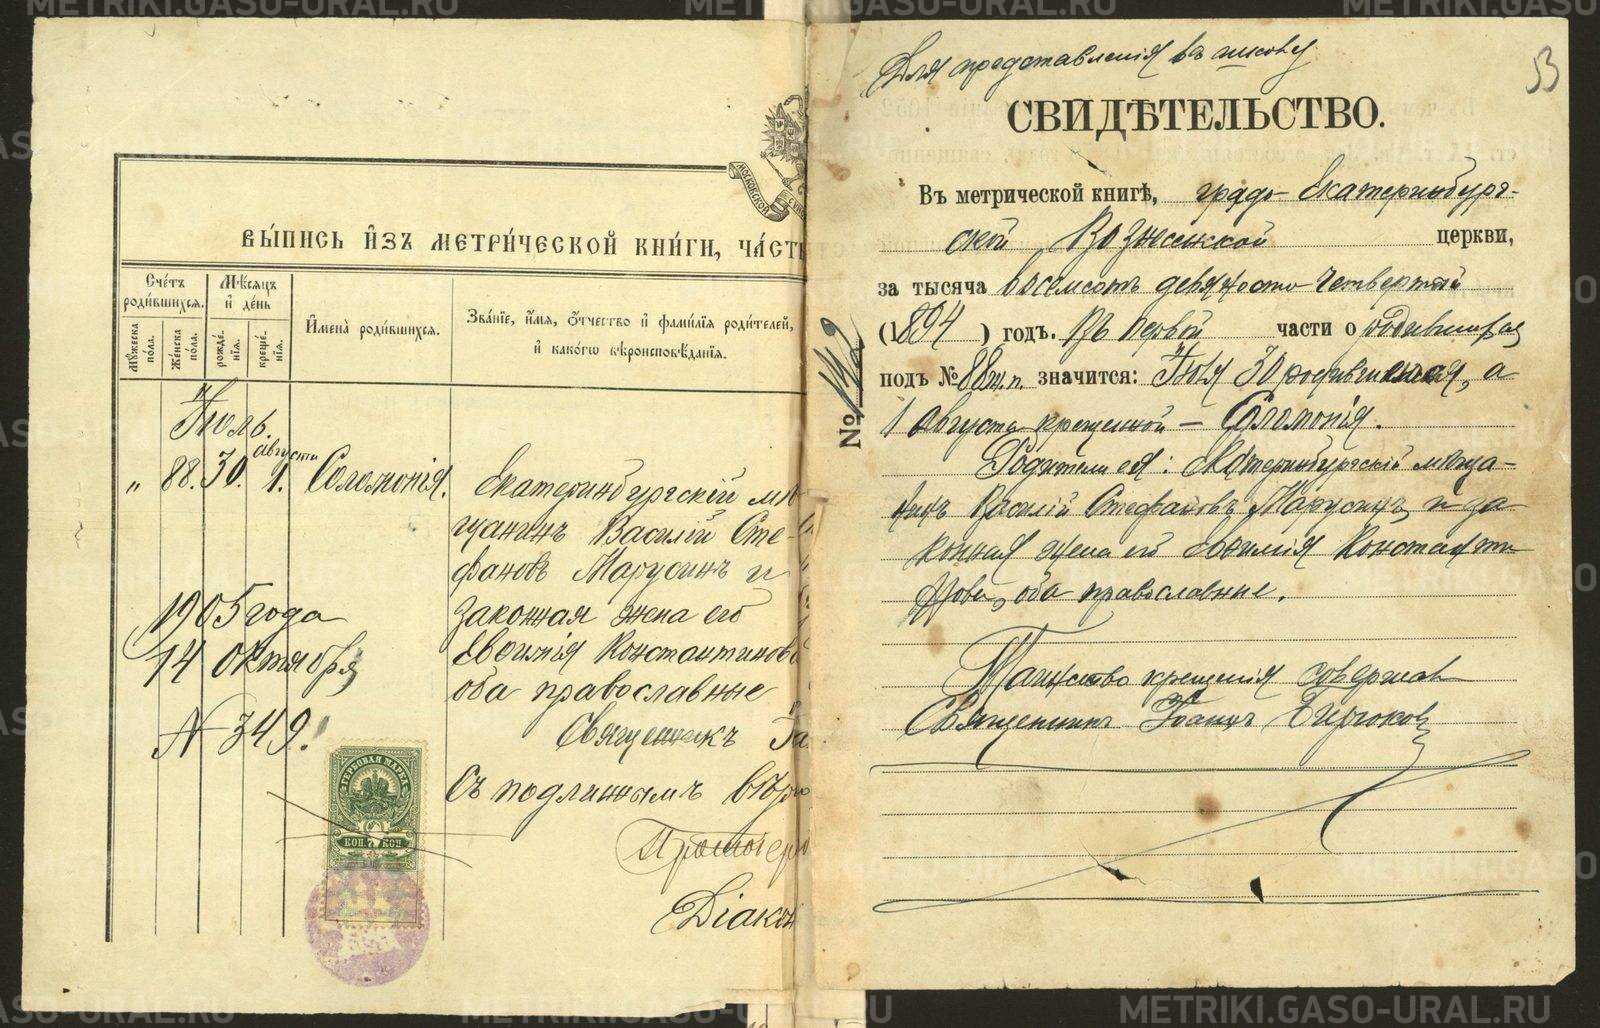 МОСКОВСКОЙ
ВЫ́ПИСЬ И҆ЗЪ МЕТРИ́ЧЕСКОЙ КНИ́ГИ, ЧА́СТЬ
Сче́тъ родившихся.
Мѣ́сяцъ и҆ де́нь
Мꙋ́жеска по́ла.
Же́нска по́ла.
рожде́нїѧ.
креще́нїѧ.
И҆мена̀ роди́вшихсѧ.
Зва́нїе, и҆́мѧ, ѻ҆́тчество и҆ фами́лїѧ роди́телей,
и҆ како́гѡ вѣроисповѣ́данїѧ.
Іюль.
Августа
„ 88. 30. 1. Соломонія.
Екатеринбургскій мѣ-
щанинъ Василій Сте-
фановъ Марусинъ и
законная жена его
Евѳимія Константинова
оба православные
Священникъ
Съ подлиннымъ
Протоіере
Діакон
1905 года
14 октября
N 349.
ГЕРБОВАЯ МАРКА
КОП. 7 КОП
Для представленія въ школу
53
СВИДѢТЕЛЬСТВО.
Въ метрической книгѣ, градо-Екатеринбург-
ской Вознесенской церкви,
за тысяча восемсотъ девяносто четвертый
(1894) годъ. Въ первой части о родившихся
подъ № 88 ж.п. значится: Іюля 30 родившаяся, а
1 Августа крещенной – Соломонія.
Родители ея: Екатеринбургскій мѣща-
нинъ Василій Стефановъ Марусинъ и за-
конная жена его Евѳимія Константи-
нова, оба православные.
Таинство крещенія совершал
Священникъ Іоаннъ Бирюков
№
METRIKI.GASO-URAL.RU